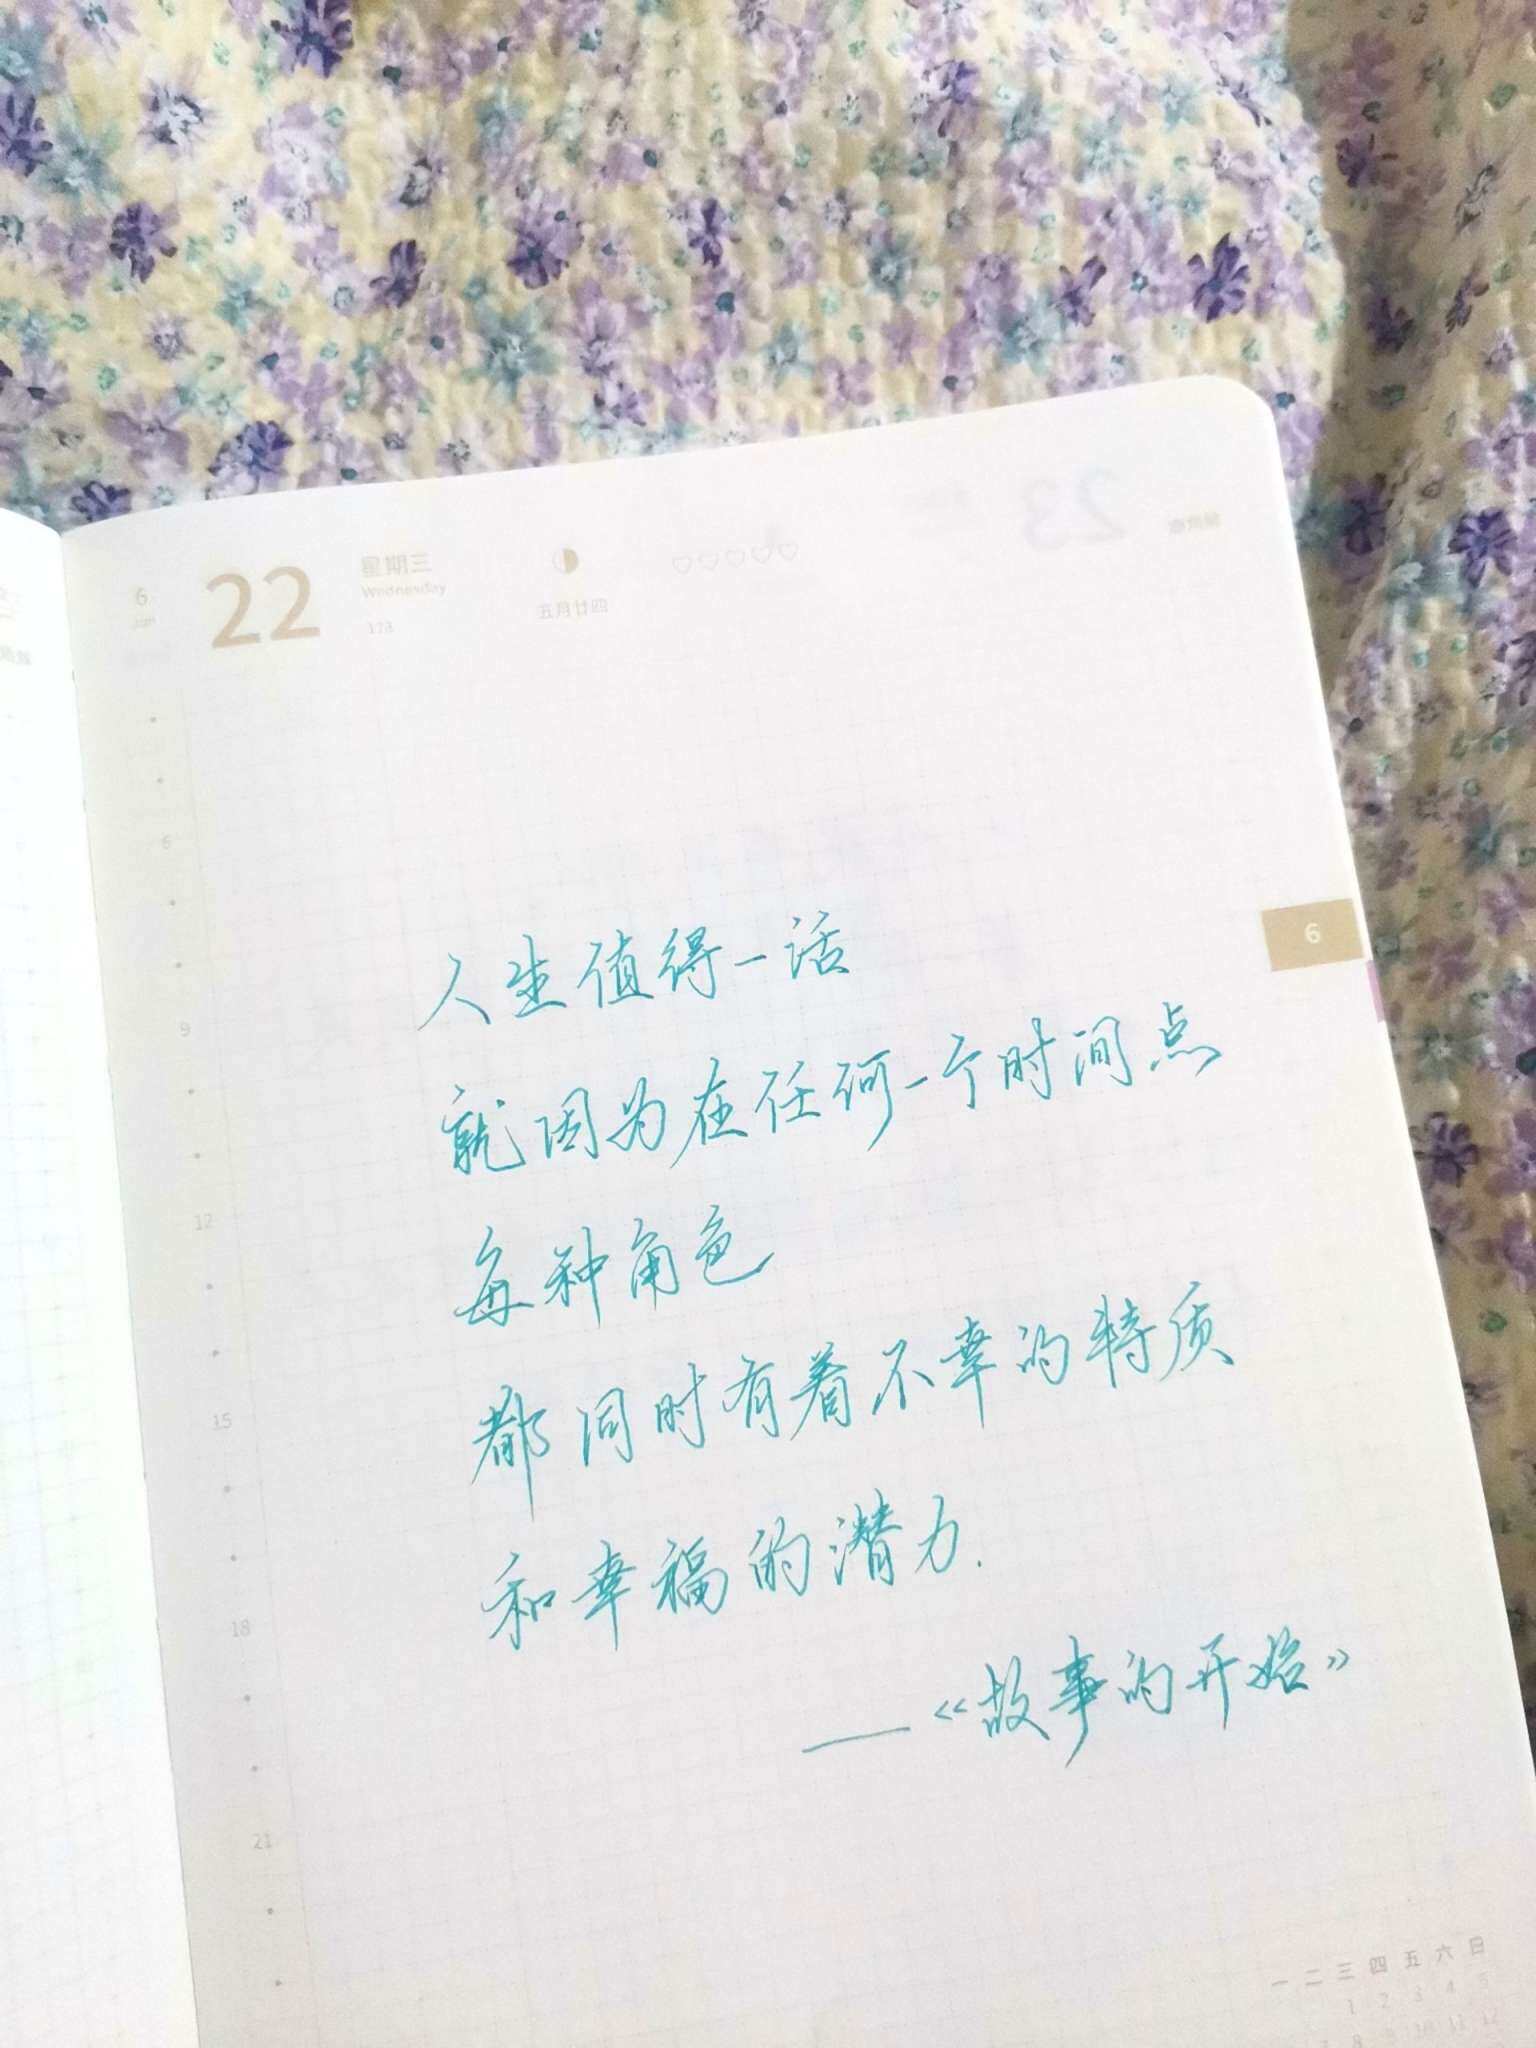 6
Jun
22
星期三
Wednesday
173
五月廿四
6
9
12
15
18
21
6
人生值得一话
就因为在任何一个时间点
每种角色
都同时有着不幸的特质
和幸福的潜力.
——《故事的开始》
一 二 三 四 五 六 日
1 2 3 4 5
7 8 9 10 11 12